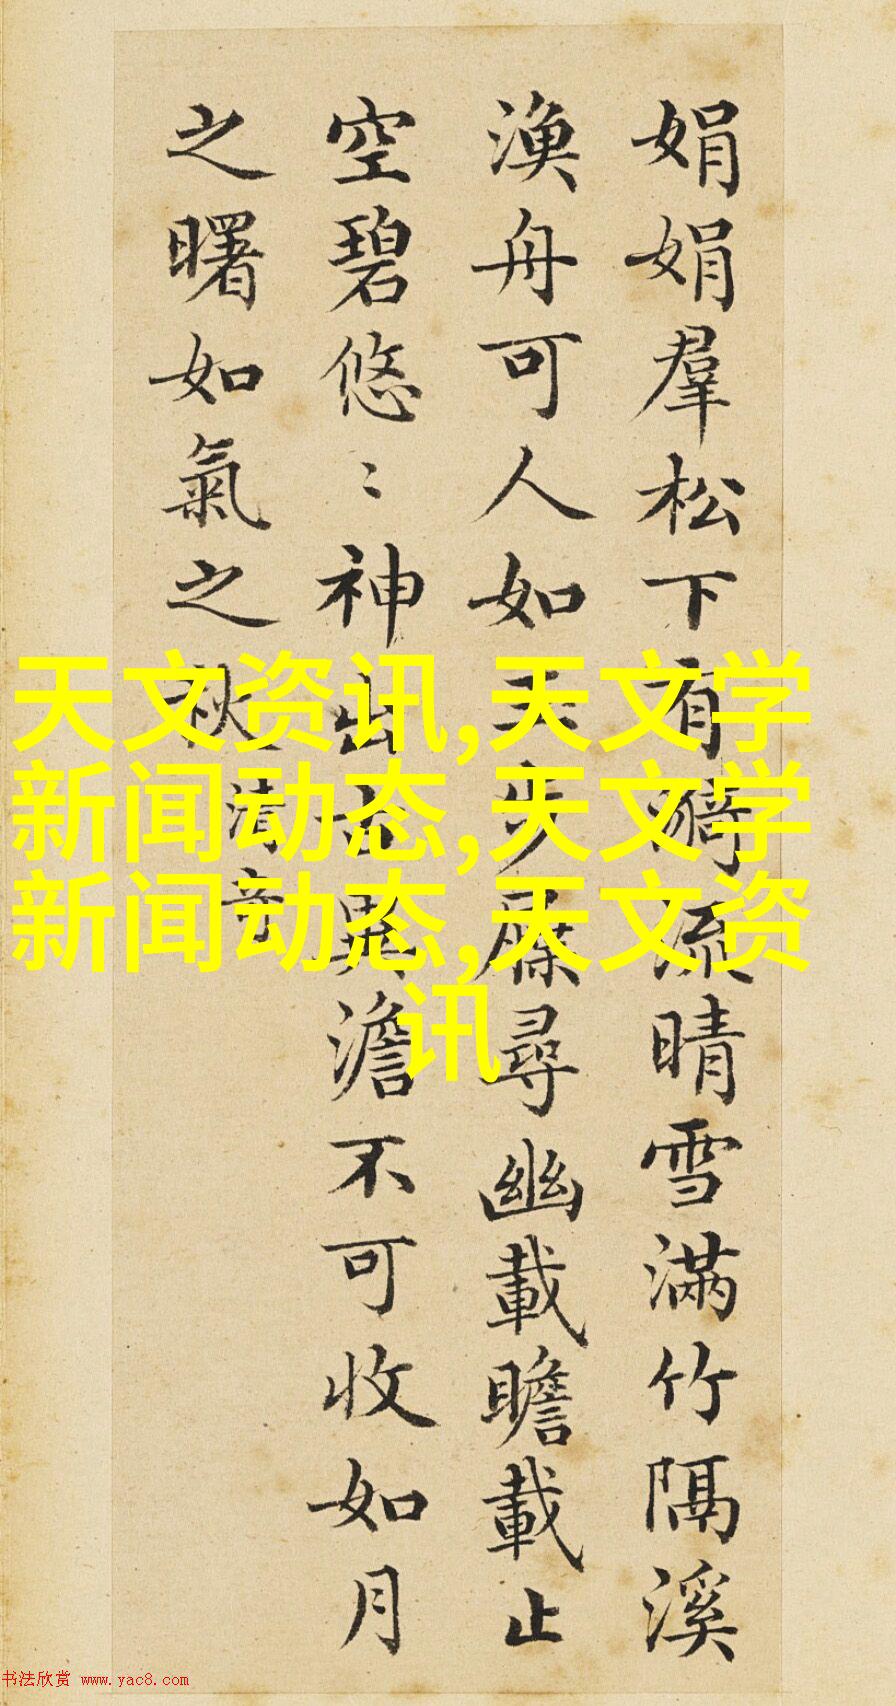 娟娟羣松下有漪流晴雪滿竹隔溪
漁舟可人如玉步屧尋幽載瞻載止
空碧悠〻神出古異澹不可收如月
之曙如氣之秋
清奇
天文资讯,天文学
新闻动态,天文学
新闻动态,天文资
讯
书法欣赏 www.yac8.com